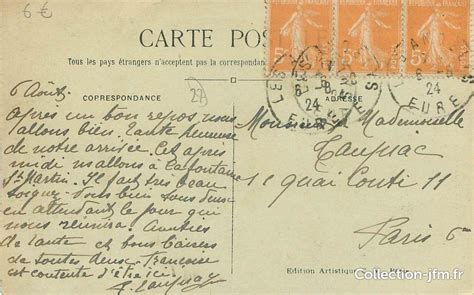 6€
CARTE POS
Tous les pays étrangers n'acceptent pas la correspondance
CORRESPONDANCE
ADRESSE
27
6 Août
Après un bon repos nous
allons bien. Tante heureuse
de notre arrivée. Cet après
midi ns allons à la fontaine
St Martin. Il fait très beau
soignez vous bien tous deux
en attendant le jour qui
nous réunira. Amitiés
de tante et bons baisers
de toutes deux. Françoise
est contente d'être ici
Monsieur Mademoiselle
11 quai Conti 11
Paris 6
5c
5c
5c
LES
8
24
EURE
8
24
EURE
Edition Artistique
Collection-jfm.fr